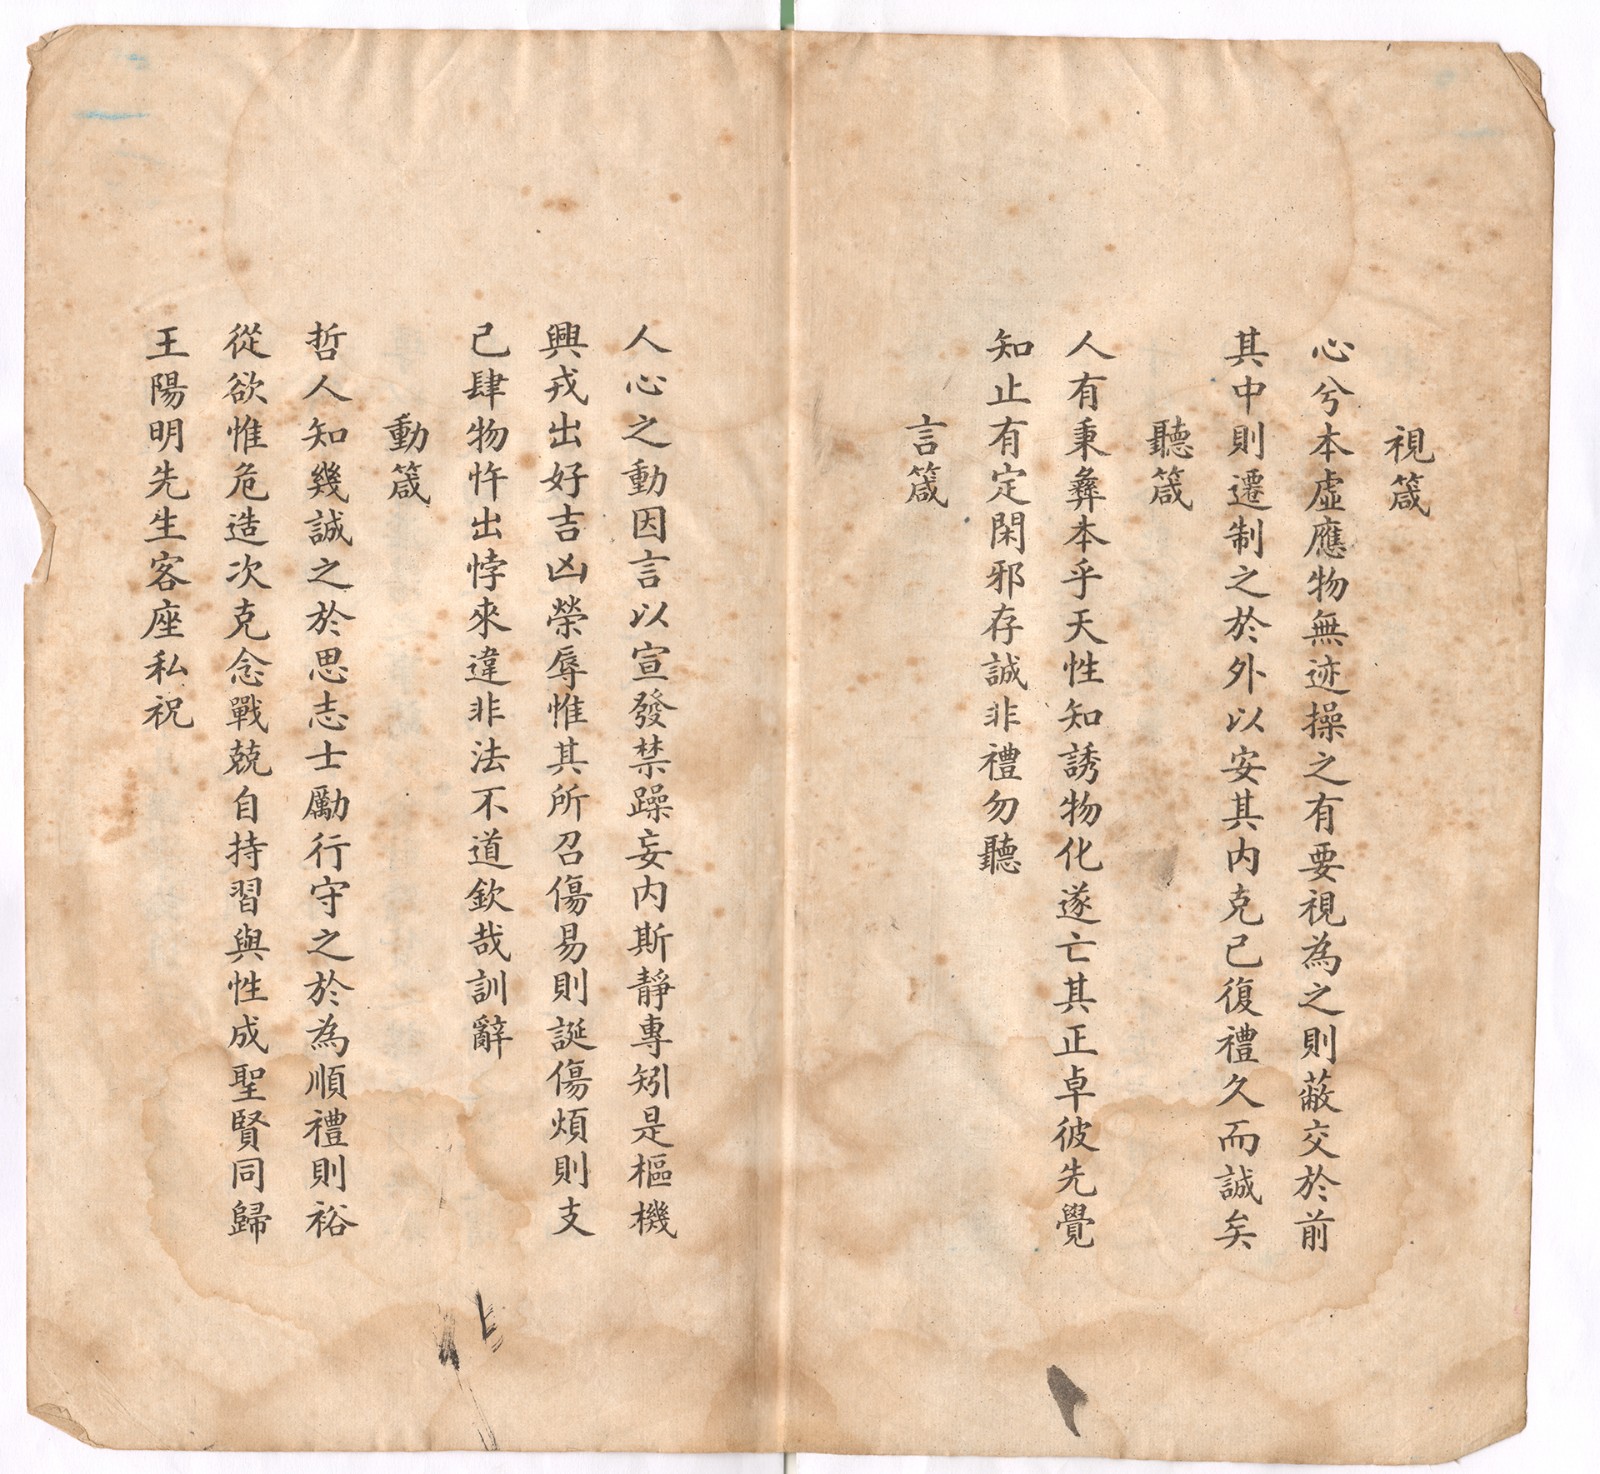 視箴
心兮本虛應物無迹操之有要視為之則蔽交於前
其中則遷制之於外以安其內克己復禮久而誠矣
聽箴
人有秉彝本乎天性知誘物化遂亡其正卓彼先覺
知止有定閑邪存誠非禮勿聽
言箴
人心之動因言以宣發禁躁妄內斯靜專矧是樞機
興戎出好吉凶榮辱惟其所召傷易則誕傷煩則支
己肆物忤出悖來違非法不道欽哉訓辭
動箴
哲人知幾誠之於思志士勵行守之於為順禮則裕
從欲惟危造次克念戰兢自持習與性成聖賢同歸
王陽明先生客座私祝